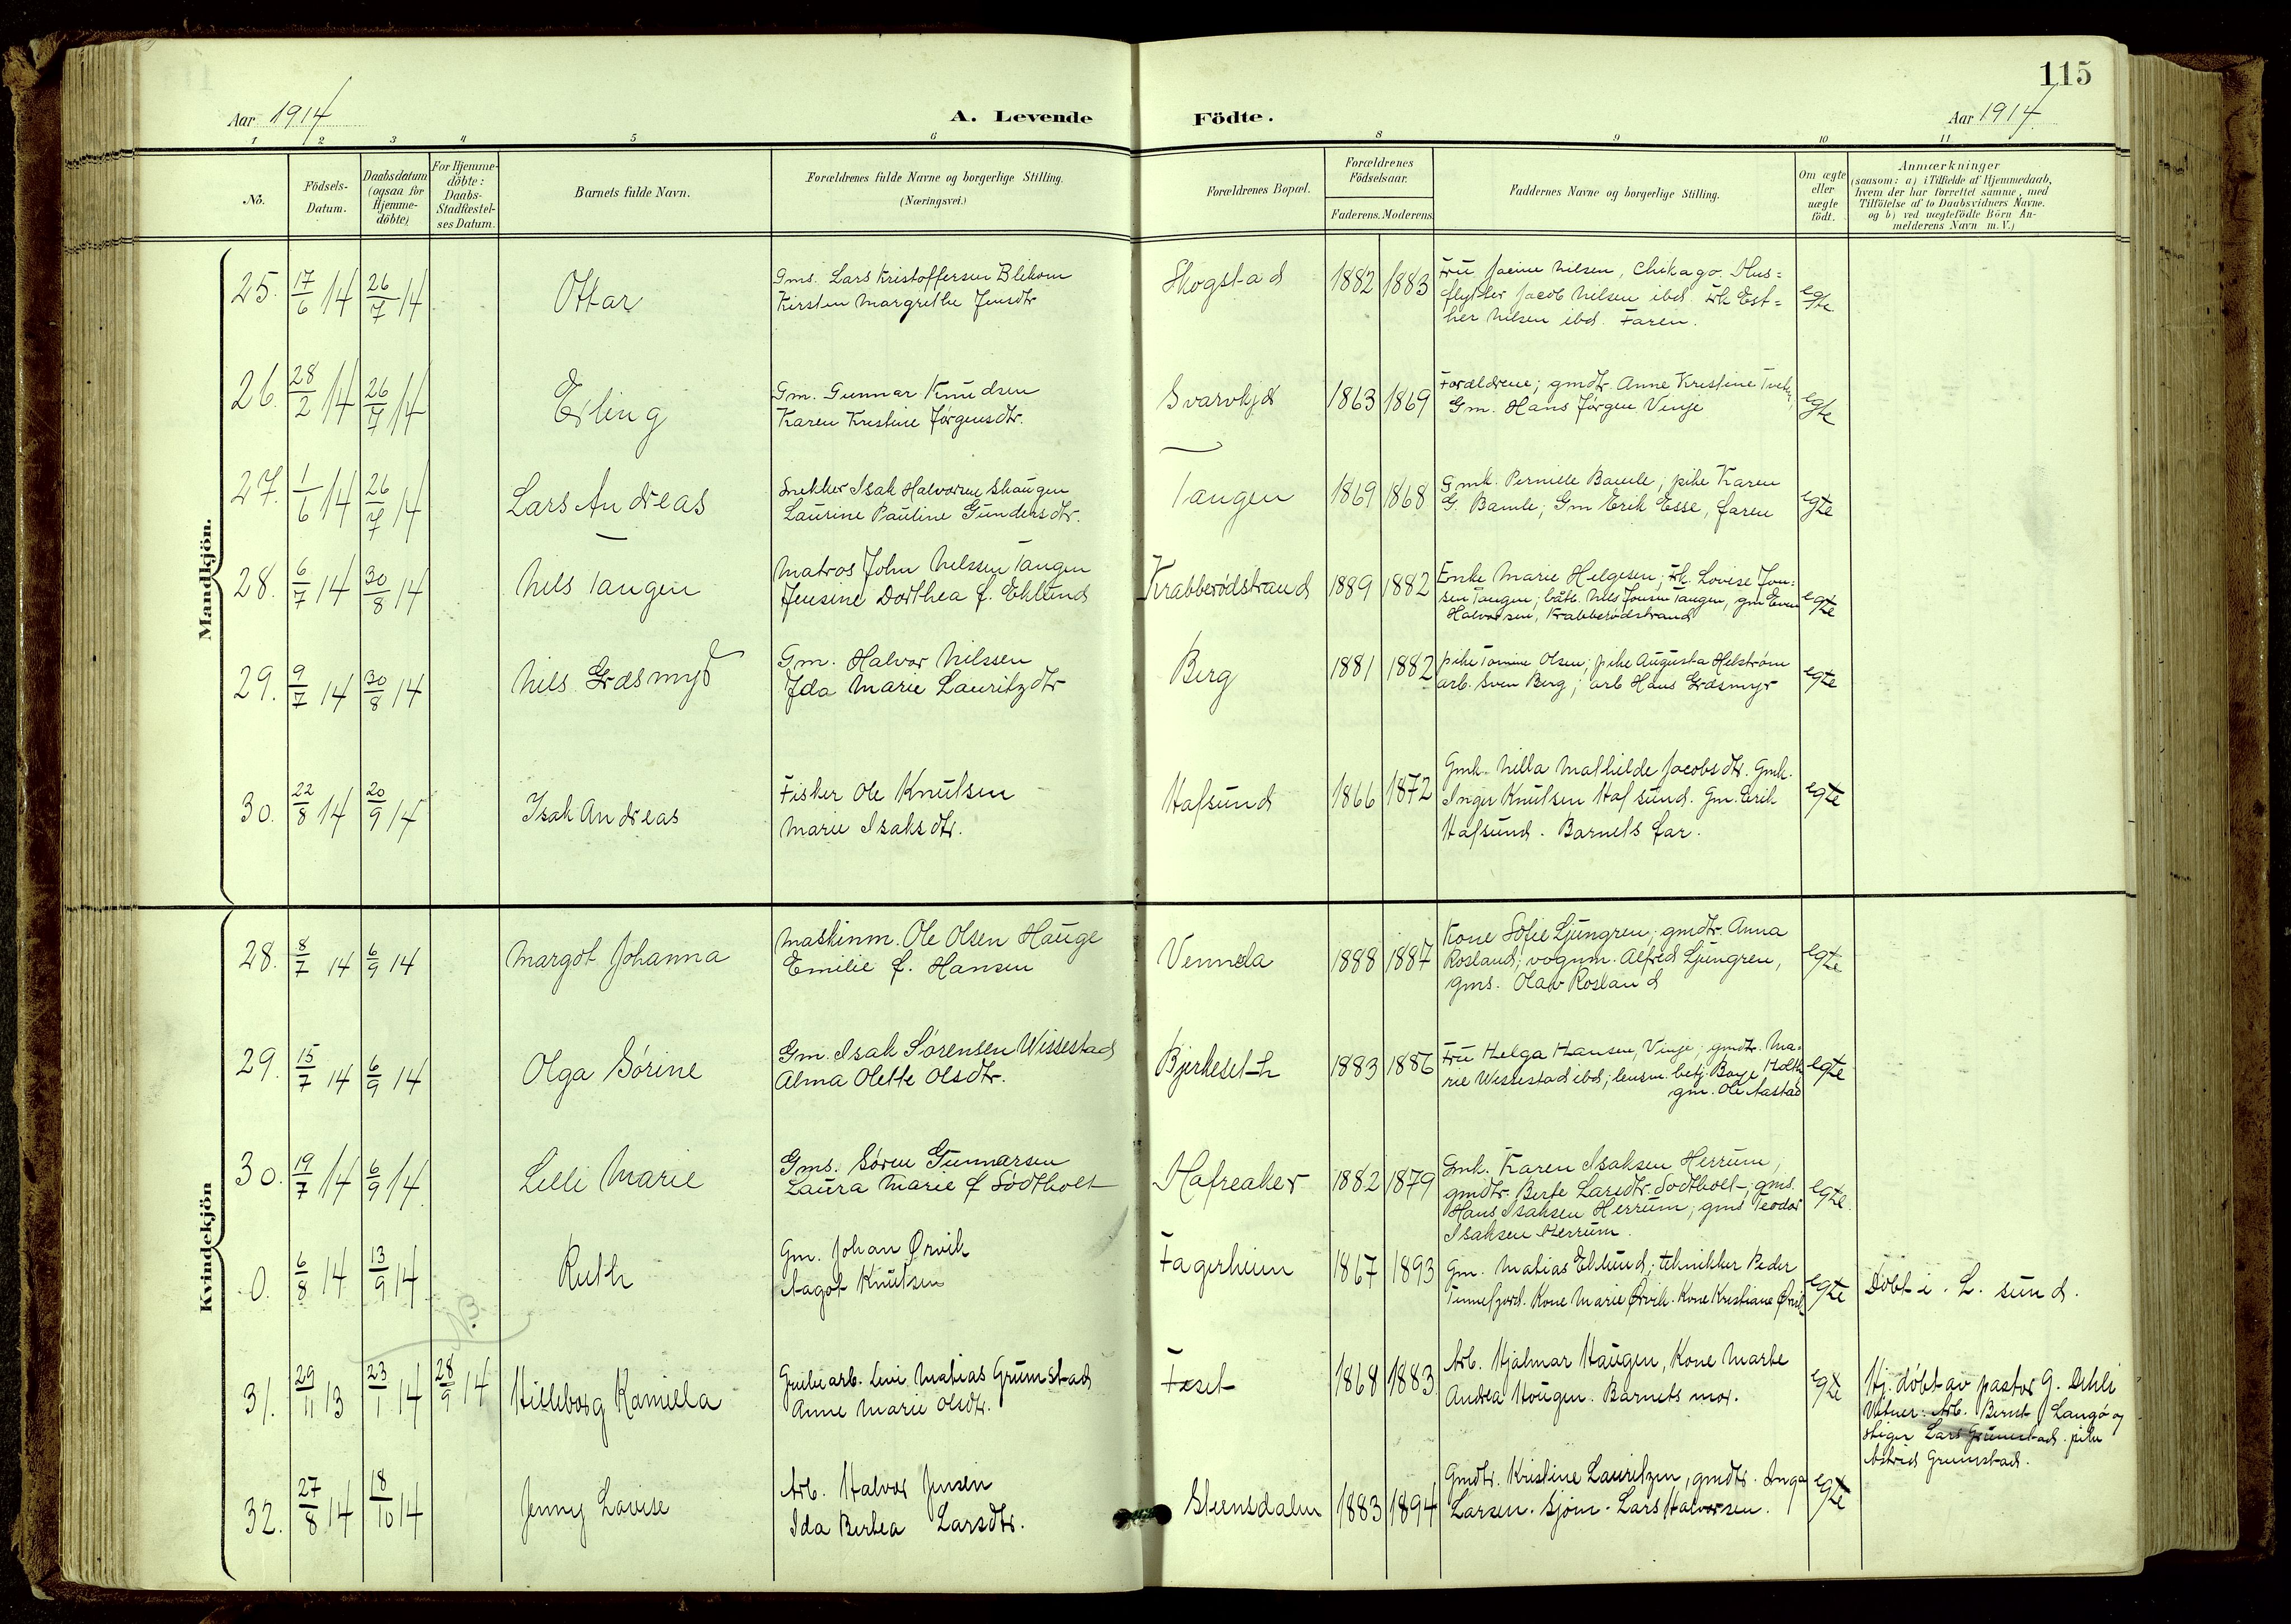 115
Aar 1914
A. Levende Födte.
Aar 1914
1 2 3 4 5 6 8 9 10 11
No.
Födsels-
Datum.
Daabsdatum
(ogsaa for
Hjemme-
döbte)
For Hjemme-
döbte:
Daabs-
Stadfæstel-
ses Datum.
Barnets fulde Navn.
Forældrenes fulde Navne og borgerlige Stilling.
(Næringsvei.)
Forældrenes Bopæl.
Forældrenes
Födselsaar.
Faderens. Moderens.
Faddernes Navne og borgerlige Stilling.
Om ægte
eller
uægte
födt.
Anmærkninger
(saasom: a) i Tilfælde af Hjemmedaab,
hvem der har forrettet samme, med
Tilföielse af to Daabsvidners Navne.
og b) ved uægtefödte Börn An-
melderens Navn m. V.)
Mandkjön.
25. 17/6 14 26/7 14 Ottar
Gms. Lars Kristoffersen Blekom
Kirsten Margrethe Jensdtr
Skogstad 1882 1883
Fru Jacine Nilsen, Chikago. Hus=
flytter Jacob Nilsen ibd. Frk Est=
her Nilsen ibd. Faren.
egte
26. 28/2 14 26/7 14 Erling
Gm. Gunnar Knudsen
Karen Kristine Jørgensdtr.
1863 1869
Forældrene; gmdtr. Anne Kristine
Gm. Hans Jørgen Vinje
egte
27. 1/6 14 26/7 14 Lars Andreas
Snekker Isak Halvorsen Skaugen
Laurine Pauline Gundersdtr.
Tangen 1869 1868
Gmk. Pernille Bamle; pike Karen
G. Bamle; Gm Erik Esse, faren
egte
28. 6/7 14 30/8 14 Nils Tangen
Matros John Nilssen Tangen
Jensine Dorthea f. Eklund
Krabberødstrand 1889 1882
Enke Marie Helgesen; Frk. Lovise Jon=
sen Tangen; båtb. Nils Jonsen Tangen, gm Even
Halvorsen, Krabberødstrand
egte
29. 9/7 14 30/8 14 Nils Græsmyr
Gm. Halvor Nilssen
Ida Marie Lauritzdtr
Berg 1881 1882
pike Tomine Olsen; pike Augusta Helstrøm
arb. Sven Berg; arb Hans Græsmyr
egte
30. 22/8 14 20/9 14 Isak Andreas
Fisker Ole Knutsen
Marie Isaksdtr.
Hafsund 1866 1872
Gmk. Nilla Mathilde Jacobsdtr. Gmk.
Inger Knutsen Hafsund. Gm. Erik
Hafsund. Barnets far.
egte
Kvindekjön
28. 8/7 14 6/9 14 Margot Johanna
Maskinm. Ole Olsen Hauge
Emilie f. Hansen
Vennela 1888 1887
Kone Sofie Ljungren; gmdtr. Anna
Rosland; vognm. Alfred Ljungren,
gms. Olav Rosland
egte
29. 15/7 14 6/9 14 Olga Sørine
Gm. Isak Sørensen Wissestad
Alma Olette Olsdtr.
Bjerkeseth 1883 1886
Fru Helga Hansen, Vinje; gmdtr. Ma=
rie Wissestad ibd; lensm. betj. Boye Holth
gm. Ole Aastad
egte
30. 19/7 14 6/9 14 Lilli Marie
Gms. Søren Gunnarsen
Laura Marie f Södtholt
Hafreaker 1882 1879
Gmk. Karen Isaksen Herrum,
gmdtr. Berte Larsdtr. Sodtholt; gms.
Hans Isaksen Herrum; gms Teodor
Isaksen Herrum.
egte.
0. 6/8 14 13/9 14 Ruth
Gm. Johan Ørvik
Aagot Knutsen
Fagerheim 1867 1893
Gm. Matias Eklund; tekniker Peder
Tennefjord. Kone Marie Ørvik. Kone Kristiane Ørvik
egte
Døbt i L. sund.
NB.
31. 29/11 13 23/1 14 28/9 14 Hilleborg Kamilla
Grubearb. Levi Matias Grumstad
Anne Marie Olsdtr.
Feset 1868 1883
Arb. Hjalmar Haugen, Kone Marte
Andrea Hougen. Barnets mor.
egte
Hj. døbt av pastor G. Dehli
Vitner: Arb. Bernt Langø og
stiger Lars Grumstad. pike
Astrid Grumstad.
32. 27/8 14 18/10 14 Jenny Lovise
Arb. Halvor Jensen
Ida Bertea Larsdtr.
Steensdalen 1883 1894
Gmdtr. Kristine Lauritzen, gmdtr. Inga
Larsen. Sjøm. Lars Halvorsen.
egte